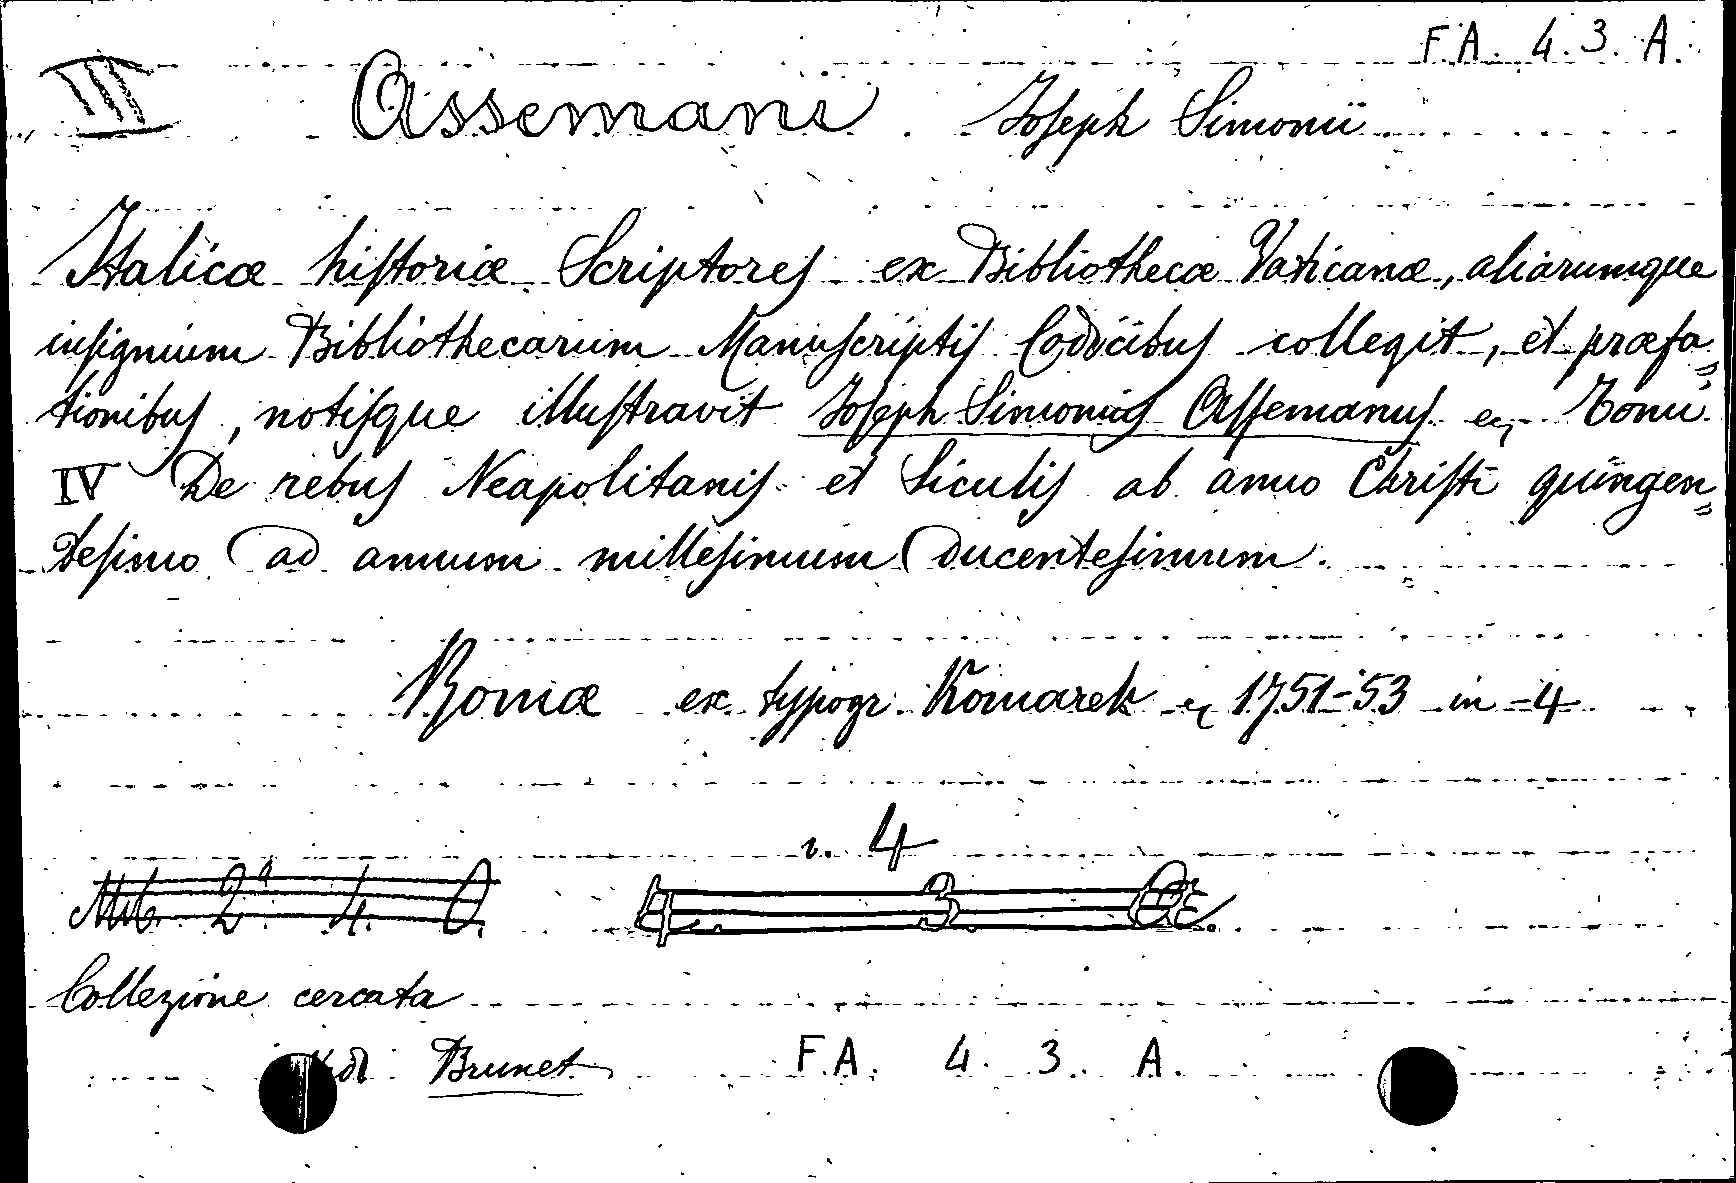 F.A. 4. 3. A.
III Assemani Joseph Simonii
Italicæ hiſtoriæ Scriptoreſ ex Bibliothecæ Vaticanæ, aliarumque
inſignium Bibliothecarum Manuſcriptiſ Codicibuſ collegit, et præfa„
tionibuſ, notiſque illuſtravit Joſeph Simoniuſ Aſſemanuſ Tomi
IV De rebuſ Neapolitaniſ et Siculiſ ab anno Chriſti quingen„
teſimo ad annum milleſimum ducenteſimum.
Romæ ex typogr. Komarek 1751-53 in-4
v. 4
2ª 4. O. 4. 3.
Collezione cercata
Brunet F.A. 4. 3. A.